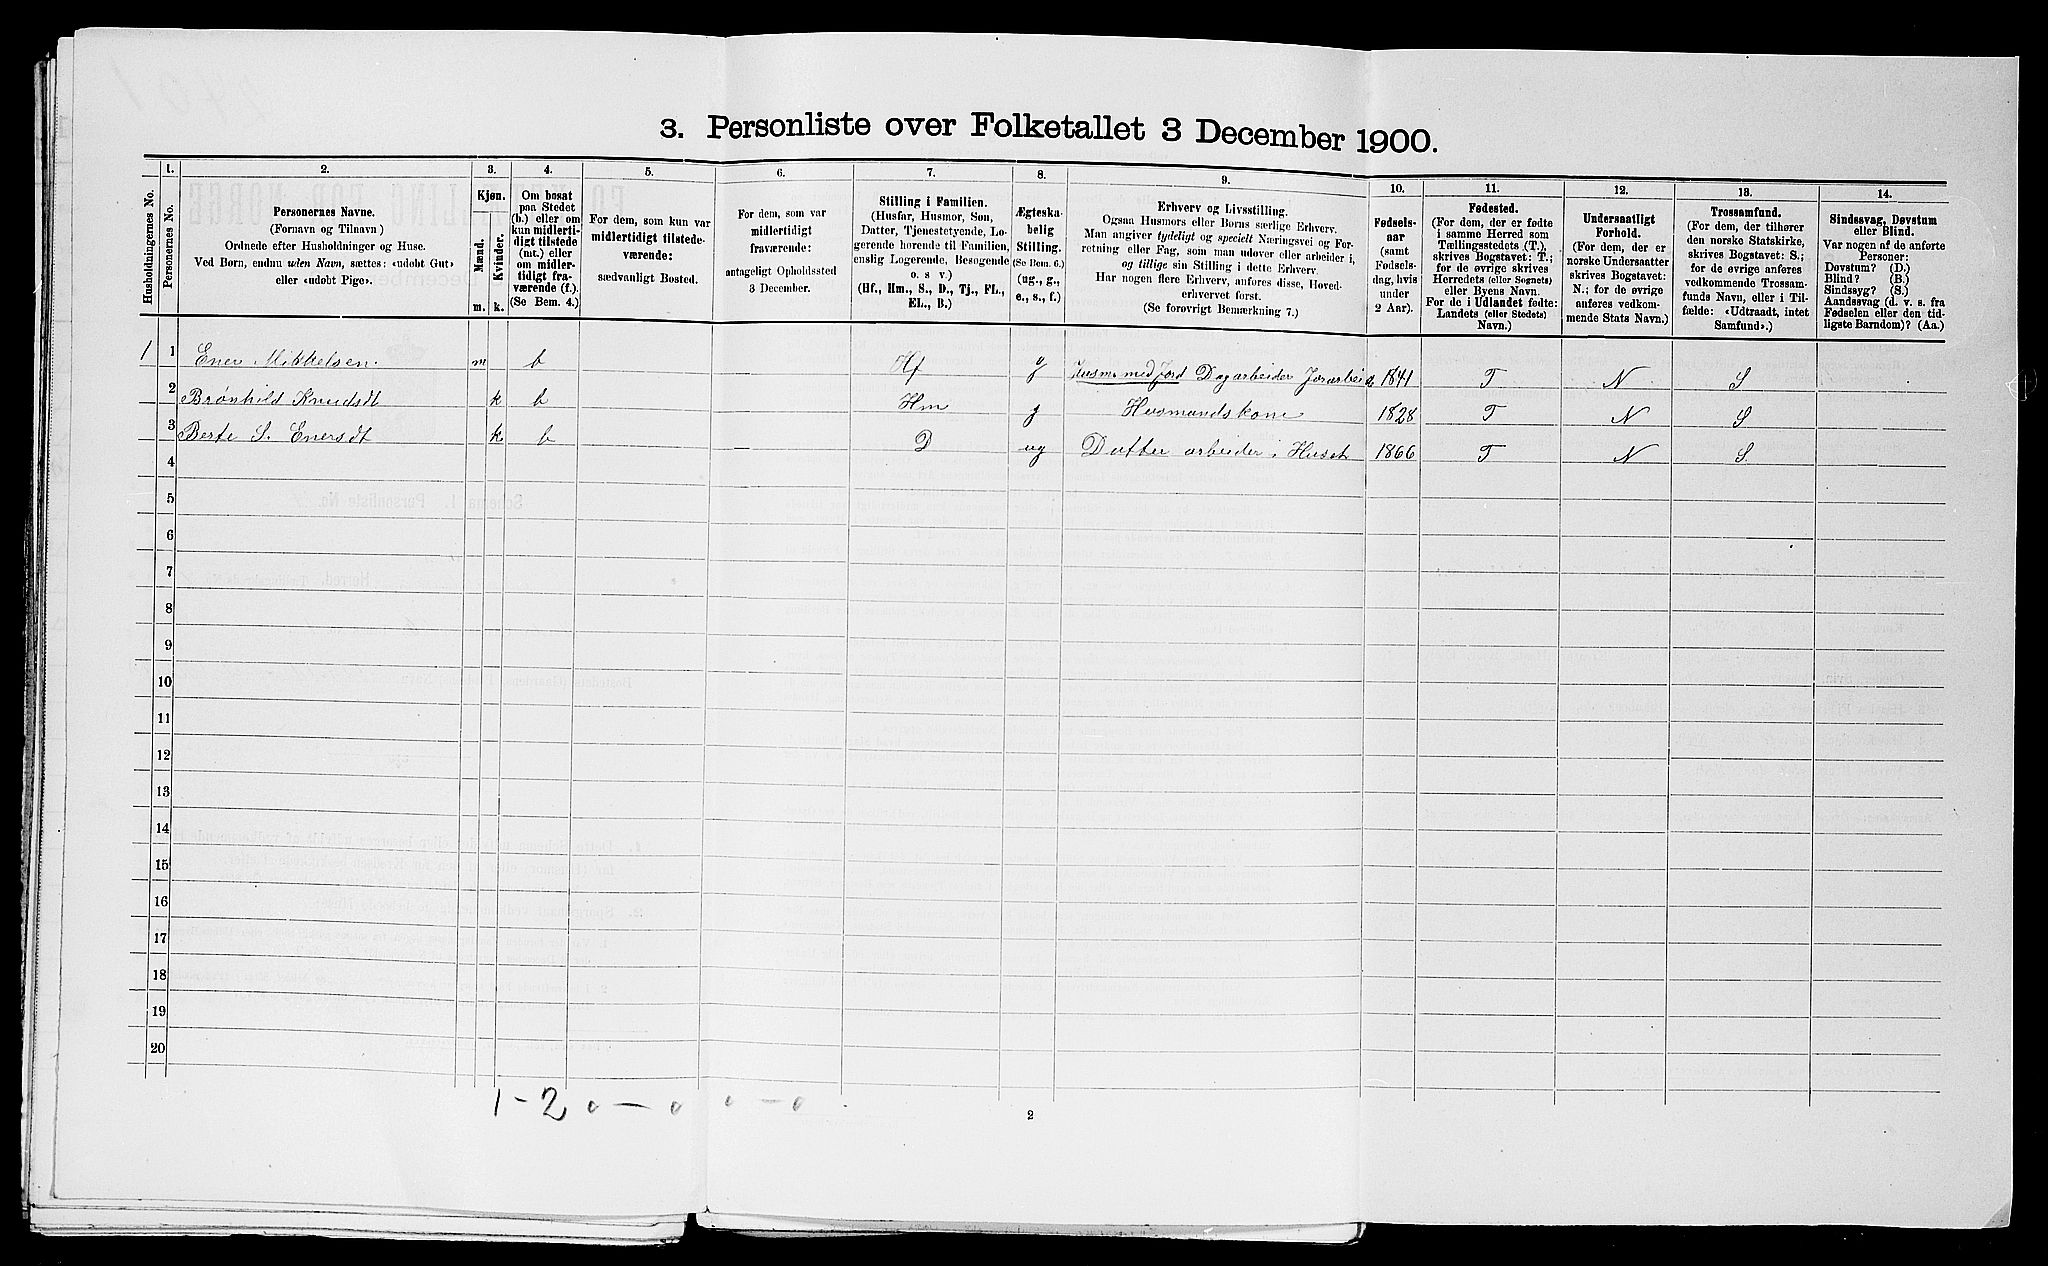 3. Personliste over Folketallet 3 December 1900.
Husholdningernes No.
1.
Personernes No.
2.
Personernes Navne.
(Fornavn og Tilnavn)
Ordnede efter Husholdninger og Huse.
Ved Børn, endnu uden Navn, sættes: «udøbt Gut»
eller «udøbt Pige».
3.
Kjøn.
Mænd.
Kvinder.
m. k.
4.
Om bosat
paa Stedet
(b.) eller om
kun midlerti-
digt tilstede
(mt.) eller
om midler-
tidigt fra-
værende (f.).
(Se Bem. 4.)
5.
For dem, som kun var
midlertidigt tilstede-
værende:
sædvanligt Bosted.
6.
For dem, som var
midlertidigt
fraværende:
antageligt Opholdssted
3 December.
7.
Stilling i Familien.
(Husfar, Husmor, Søn,
Datter, Tjenestetyende, Lo-
gerende hørende til Familien,
enslig Logerende, Besøgende
o. s v.)
(Hf., Hm., S., D., Tj., FL.,
EL., B.)
8.
Ægteska-
belig
Stilling.
(Se Bem. 6.)
(ug., g.,
e., s., f.)
9.
Erhverv og Livsstilling.
Ogsaa Husmors eller Børns særlige Erhverv.
Man angiver tydeligt og specielt Næringsvei og For-
retning eller Fag, som man udøver eller arbeider i,
og tillige sin Stilling i dette Erhverv.
Har nogen flere Erhverv, anføres disse, Hoved-
erhvervet først.
(Se forøvrigt Bemærkning 7.)
10.
Fødsels-
aar
(samt
Fødsels-
dag, hvis
under
2 Aar).
11.
Fødested.
(For dem, der er fødte
i samme Herred som
Tællingsstedets (T.),
skrives Bogstavet: T.;
for de øvrige skrives
Herredets (eller Sognets)
eller Byens Navn.
For de i Udlandet fødte:
Landets (eller Stedets)
Navn.)
12.
Undersaatligt
Forhold.
(For dem, der er
norske Undersaatter
skrives Bogstavet:
N.; for de øvrige
anføres vedkom-
mende Stats Navn.)
13.
Trossamfund.
(For dem, der tilhører
den norske Statskirke,
skrives Bogstavet: S.;
for de øvrige anføres
vedkommende Trossam-
funds Navn, eller i Til-
fælde: «Udtraadt, intet
Samfund».)
14.
Sindssvag, Døvstum
eller Blind.
Var nogen af de anførte
Personer:
Døvstum? (D.)
Blind? (B.)
Sindssyg? (S.)
Aandssvag (d. v. s. fra
Fødselen eller den tid-
ligste Barndom)? (Aa.)
1 1 Ener Mikkelsen. m b Hf g Husm. med Jord Dagarbeider Jorarbeid 1841 T N S
2 Brønhild Knudsdt k b Hm g Husmandskone 1828 T N S
3 Berte S. Enersdt k b D ug Datter arbeider i Huset 1866 T N S.
4
5
6
7
8
9
10
11
12
13
14
15
16
17
18
19
20
1 - 2 0 - 0 0 - 0
2